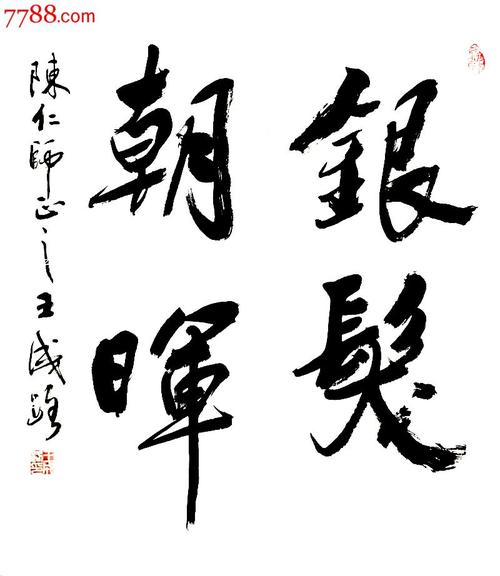 7788.com
銀髮
朝暉
陳仁師正之王成